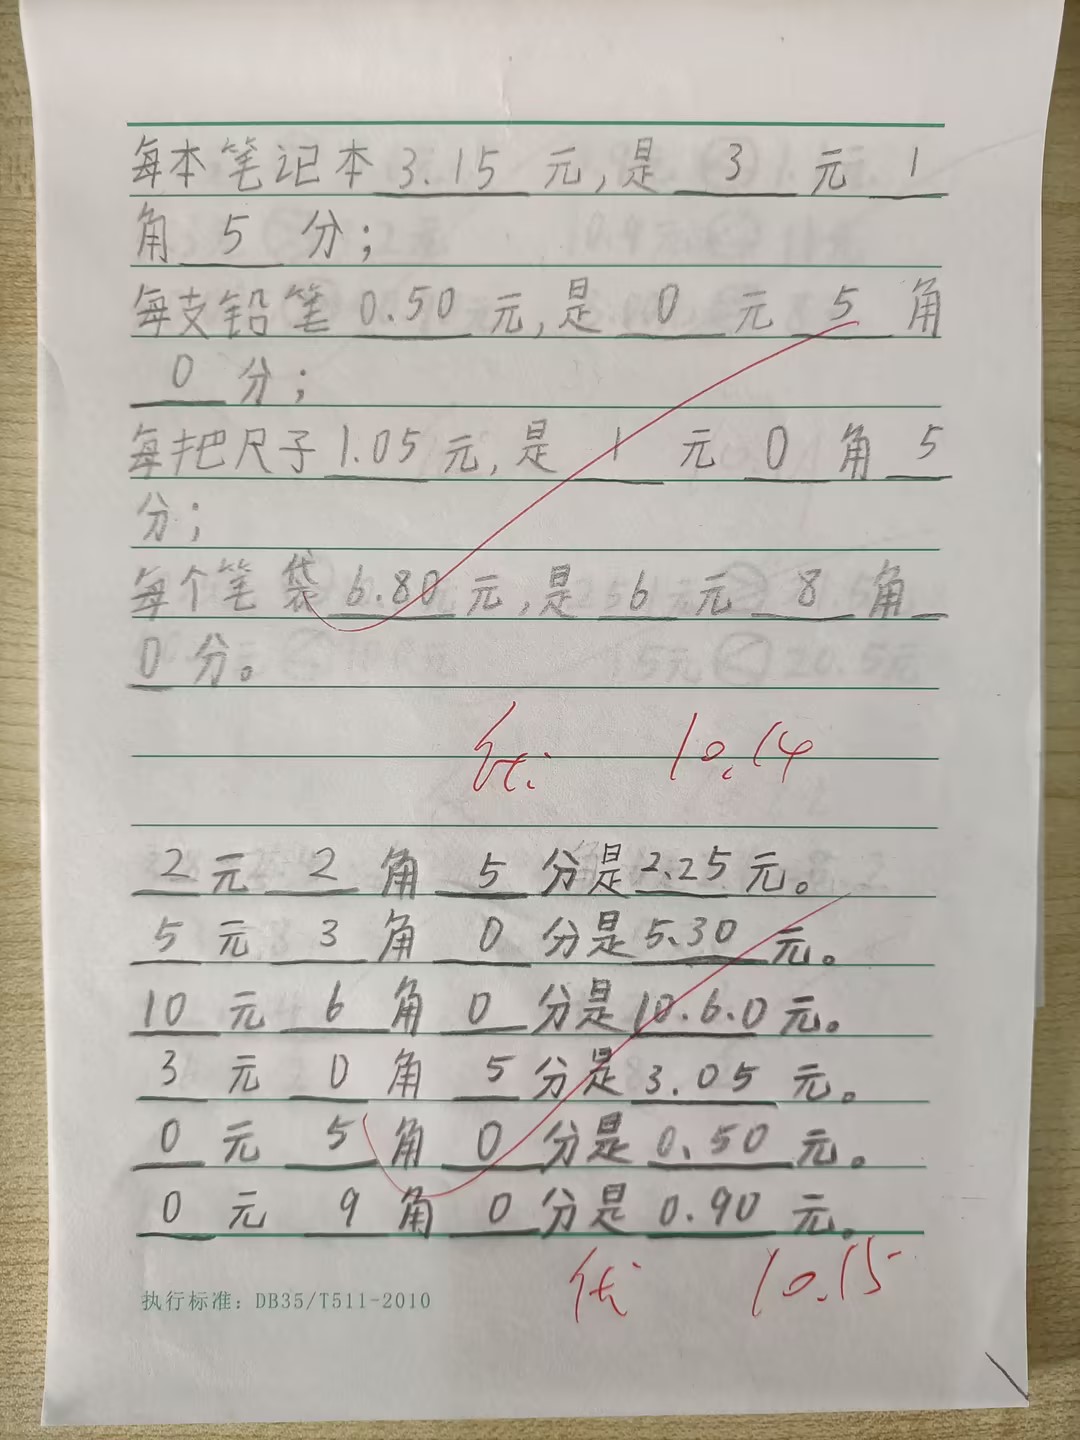 每本笔记本3.15元,是3元1
角5分;
每支铅笔0.50元,是0元5角
0分;
每把尺子1.05元,是1元0角5
分;
每个笔袋6.80元,是6元8角
0分。
优 10.14
2元2角5分是2.25元。
5元3角0分是5.30元。
10元6角0分是10.6.0元。
3元0角5分是3.05元。
0元5角0分是0.50元。
0元9角0分是0.90元。
优 10.15
执行标准：DB35/T511-2010